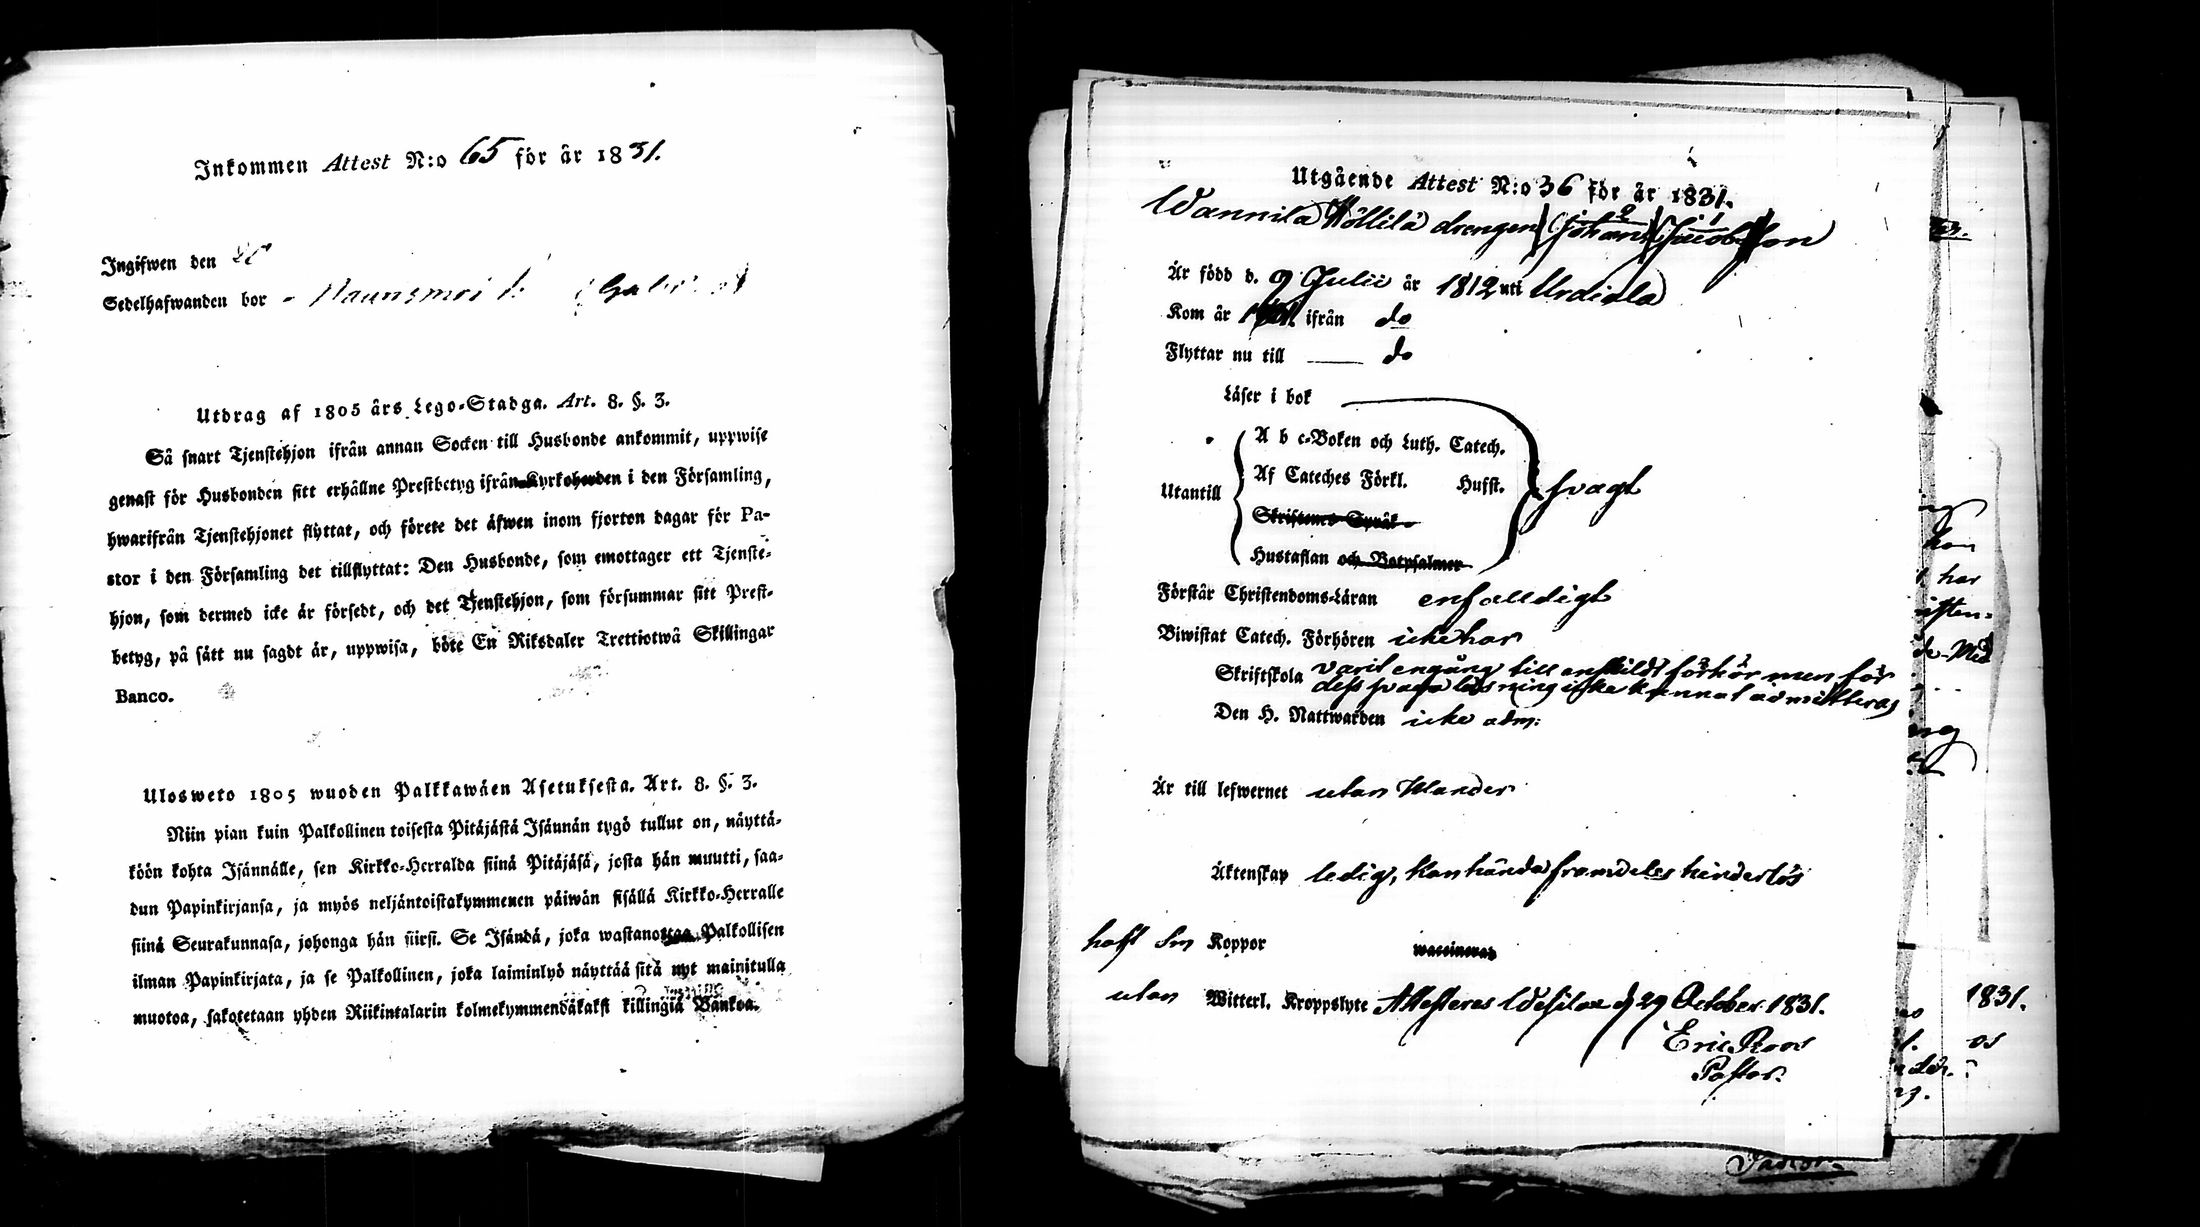 Inkommen Attest N:o 65 för år 1831.
Ingifwen den
Sedelhafwanden bor
Utdrag af 1805 års Lego-Stadga. Art. 8. §. 3.
Så snart Tjenstehjon ifrån annan Socken till Husbonde ankommit, uppwise
genast för Husbonden sitt erhållne Prestbetyg ifrån Kyrkoherden i den Församling,
hwarifrån Tjenstehjonet flyttat, och förete det äfwen inom fjorton dagar för Pa-
stor i den Församling det tillflyttat: Den Husbonde, som emottager ett Tjenste-
hjon, som dermed icke är försedt, och det Tjenstehjon, som försummar sitt Prest-
betyg, på sätt nu sagdt är, uppwisa, böte En Riksdaler Trettiotwå Skillingar
Banco.
Ulosweto 1805 wuoden Palkkawäen Asetuksesta. Art. 8. §. 3.
Niin pian kuin Palkollinen toisesta Pitäjästä Isännän tygö tullut on, näyttä-
köön kohta Isännälle, sen Kirkko-Herralda siinä Pitäjäsä, josta hän muutti, saa-
dun Papinkirjansa, ja myös neljäntoistakymmenen päiwän sisällä Kirkko-Herralle
siinä Seurakunnasa, johonga hän siirsi. Se Isändä, joka wastanottaa Palkollisen
ilman Papinkirjata, ja se Palkollinen, joka laiminlyö näyttää sitä nyt mainitulla
muotoa, sakotetaan yhden Riikintalarin kolmekymmendäkaksi killingiä Bankoa.
Utgående Attest N:o 36 för år 1831.
Wannila Höllilä drengen Johan Jacobsson
Är född d. 9 Julii år 1812 uti Urdiala
Kom år ifrån do
Flyttar nu till do
Läser i bok
A b c-Boken och Luth. Catech.
Af Cateches Förkl. Husst.
Utantill svagt
Skriftenes Språk
Hustaflan och Botpsalmer
Förstår Christendoms-Läran enfalldigt
Biwistat Catech. Förhören icke har
Skriftskola varit engång till enskildt förhör men för
dess svaga läsning icke kunnat admitteras
Den H. Nattwarden icke adm:
Är till lefwernet utan Klander
Äktenskap ledig, kanhända framdeles hinderlös
haft Sm Koppor waccinerad
utan Witterl. Kroppslyte Attesteras Wesilax d 29 October 1831.
Eric Roos
Pastor.
har
1831.
Pastor.